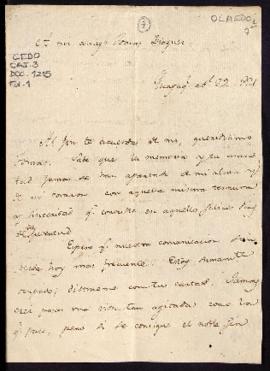 OLMEDO
CEDO
CAJ-3
DOC. 1215
Fol-1
A mi amigo Tomas
Guayaq. 22
Al fin te acuerdas de mi, queridisimo
Tomas. Sabe que tu memoria y tu amis
tad jamas se han apartado de mi alma y
de mi corazon con aquella misma ternura
y sinceridad q. en aquellos felices dias
de
Espero q. nuestra comunicacion sea
desde hoy mas frecuente. Estoy sumamente
ocupado; distraeme con tus cartas. Jamas
crei pasar una vida tan agitada como la
q. paso, pero si se consigue el noble fin